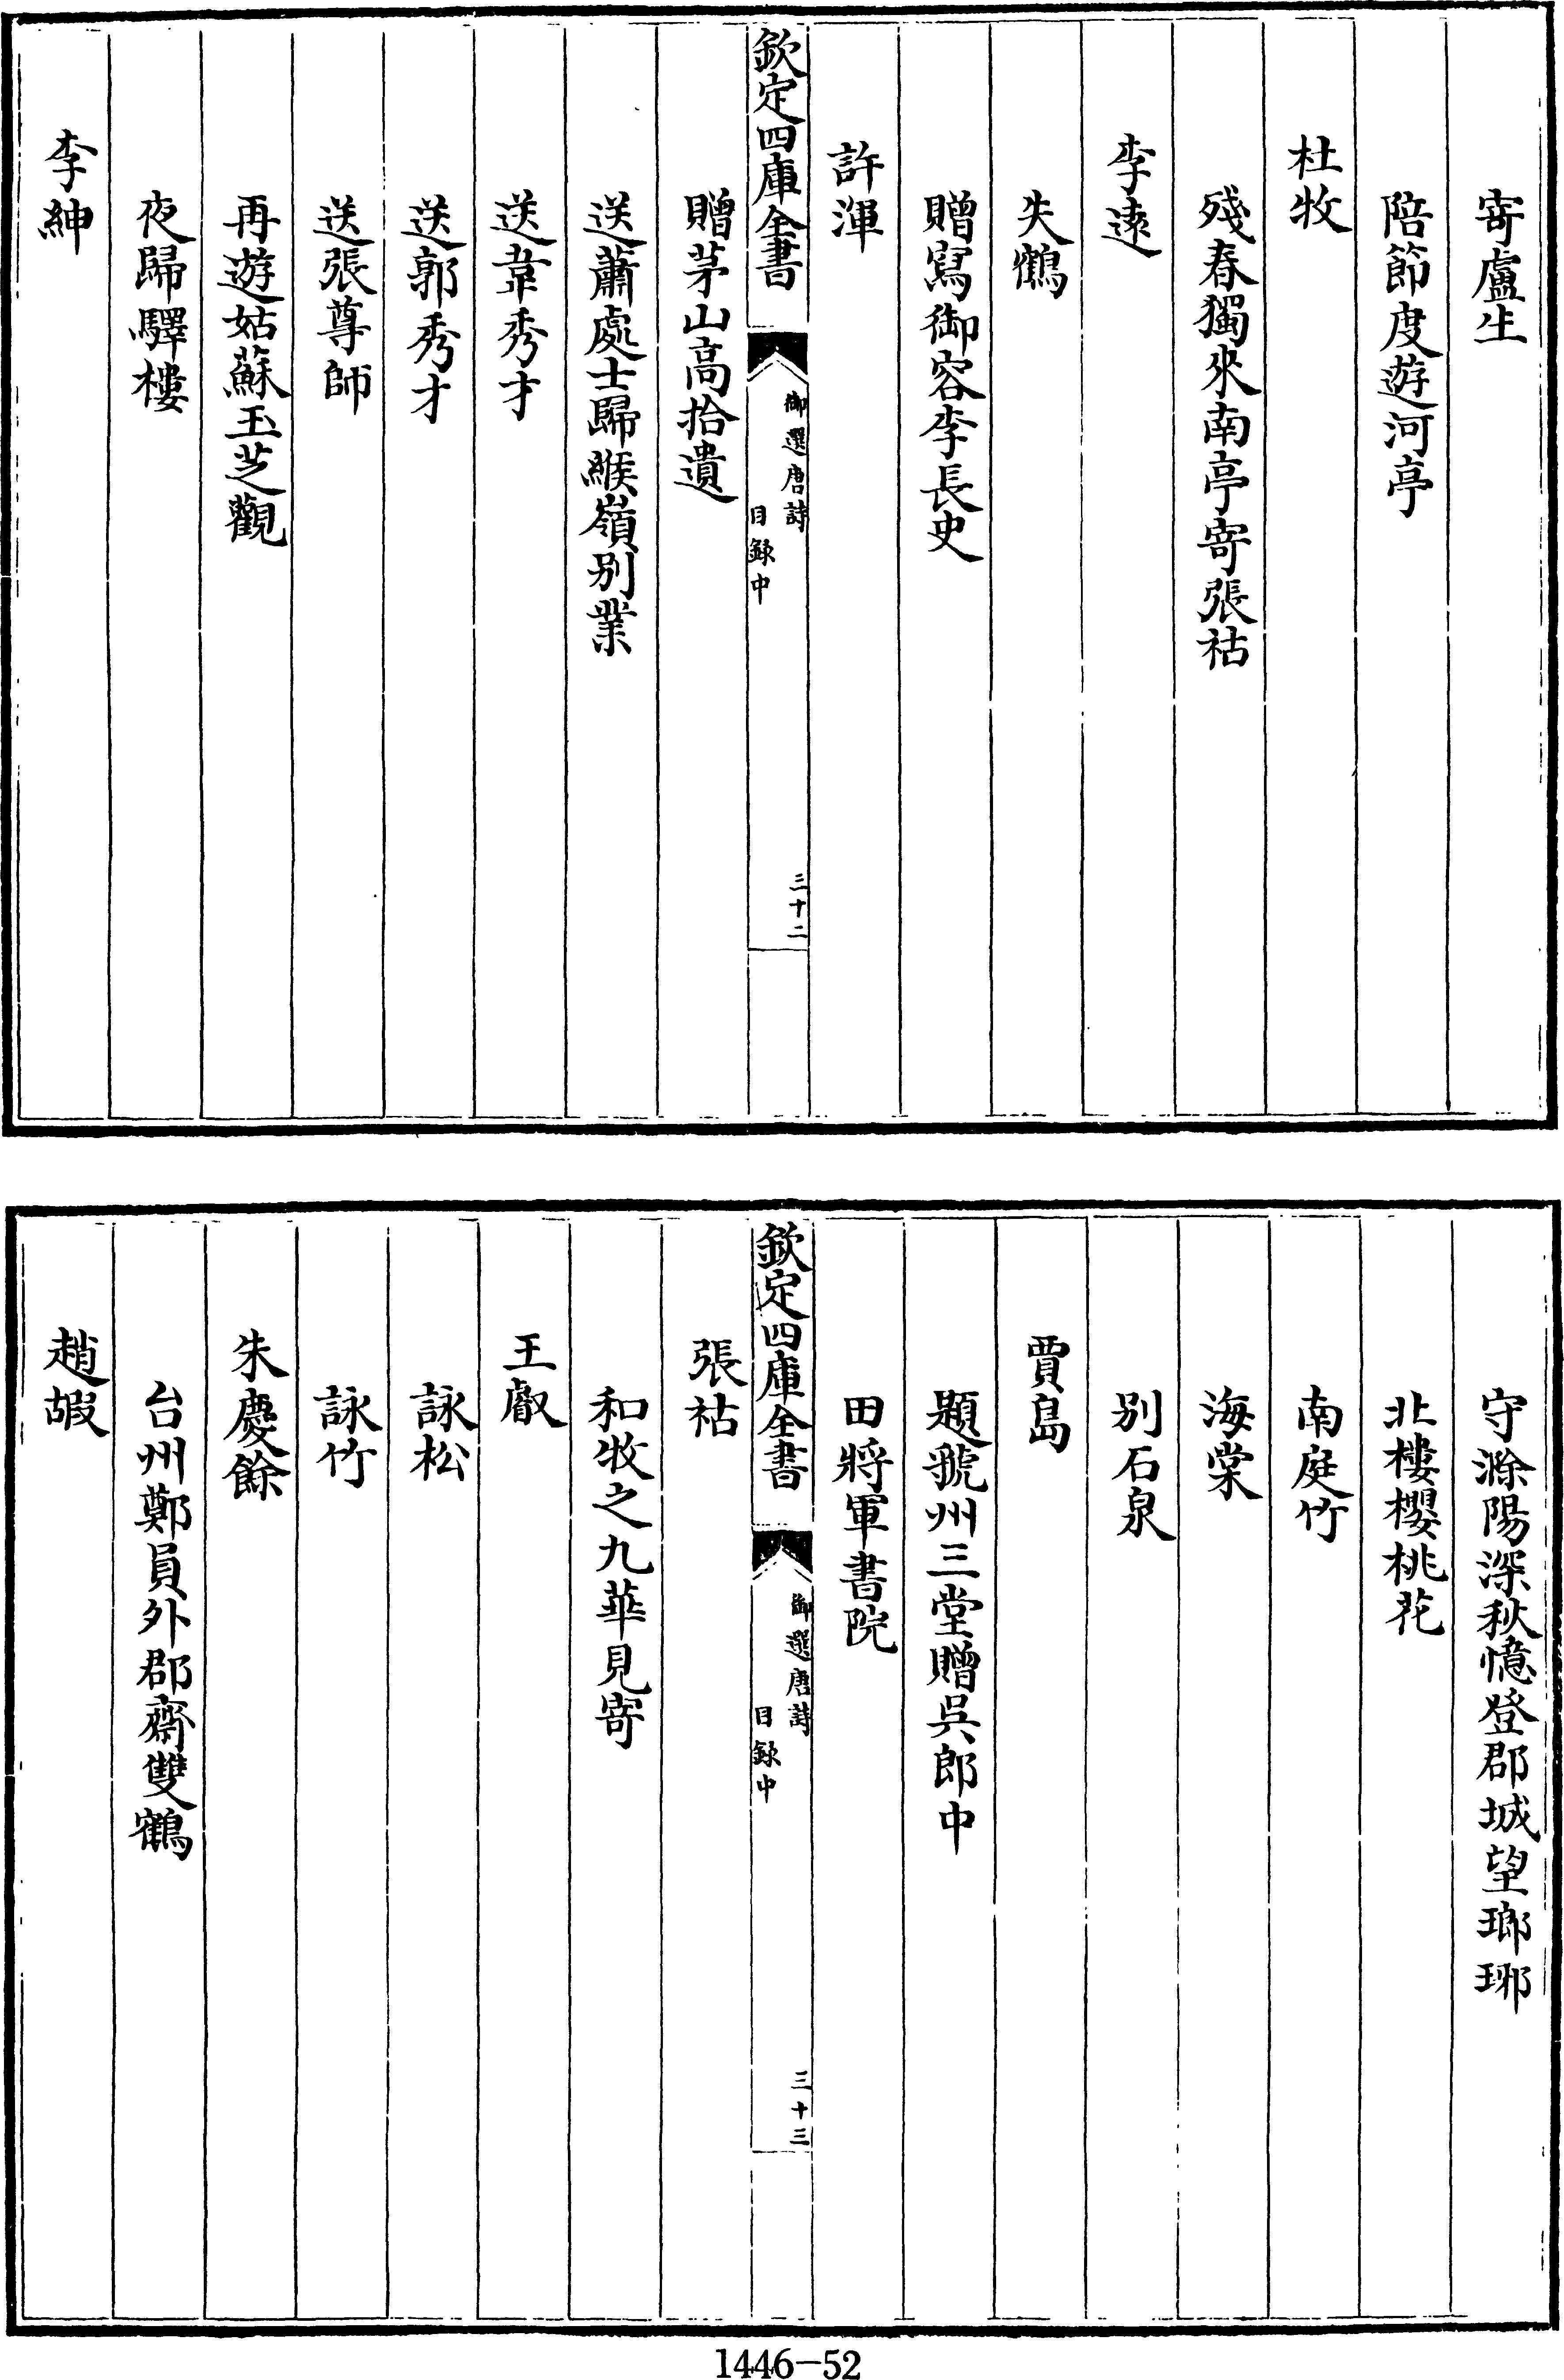 寄盧生
陪節度遊河亭
杜牧
殘春獨來南亭寄張祜
李遠
失鶴
贈寫御容李長史
許渾
欽定四庫全書
御選唐詩
目録中
三十二
贈茅山高拾遺
送蕭處士歸緱嶺别業
送韋秀才
送郭秀才
送張尊師
再遊姑蘇玉芝觀
夜歸驛樓
李紳
守滁陽深秋憶登郡城望瑯琊
北樓櫻桃花
南庭竹
海棠
别石泉
賈島
題虢州三堂贈吳郎中
田將軍書院
欽定四庫全書
御選唐詩
目録中
三十三
張祜
和牧之九華見寄
王叡
詠松
詠竹
朱慶餘
台州鄭員外郡齋雙鶴
趙嘏
1446-52